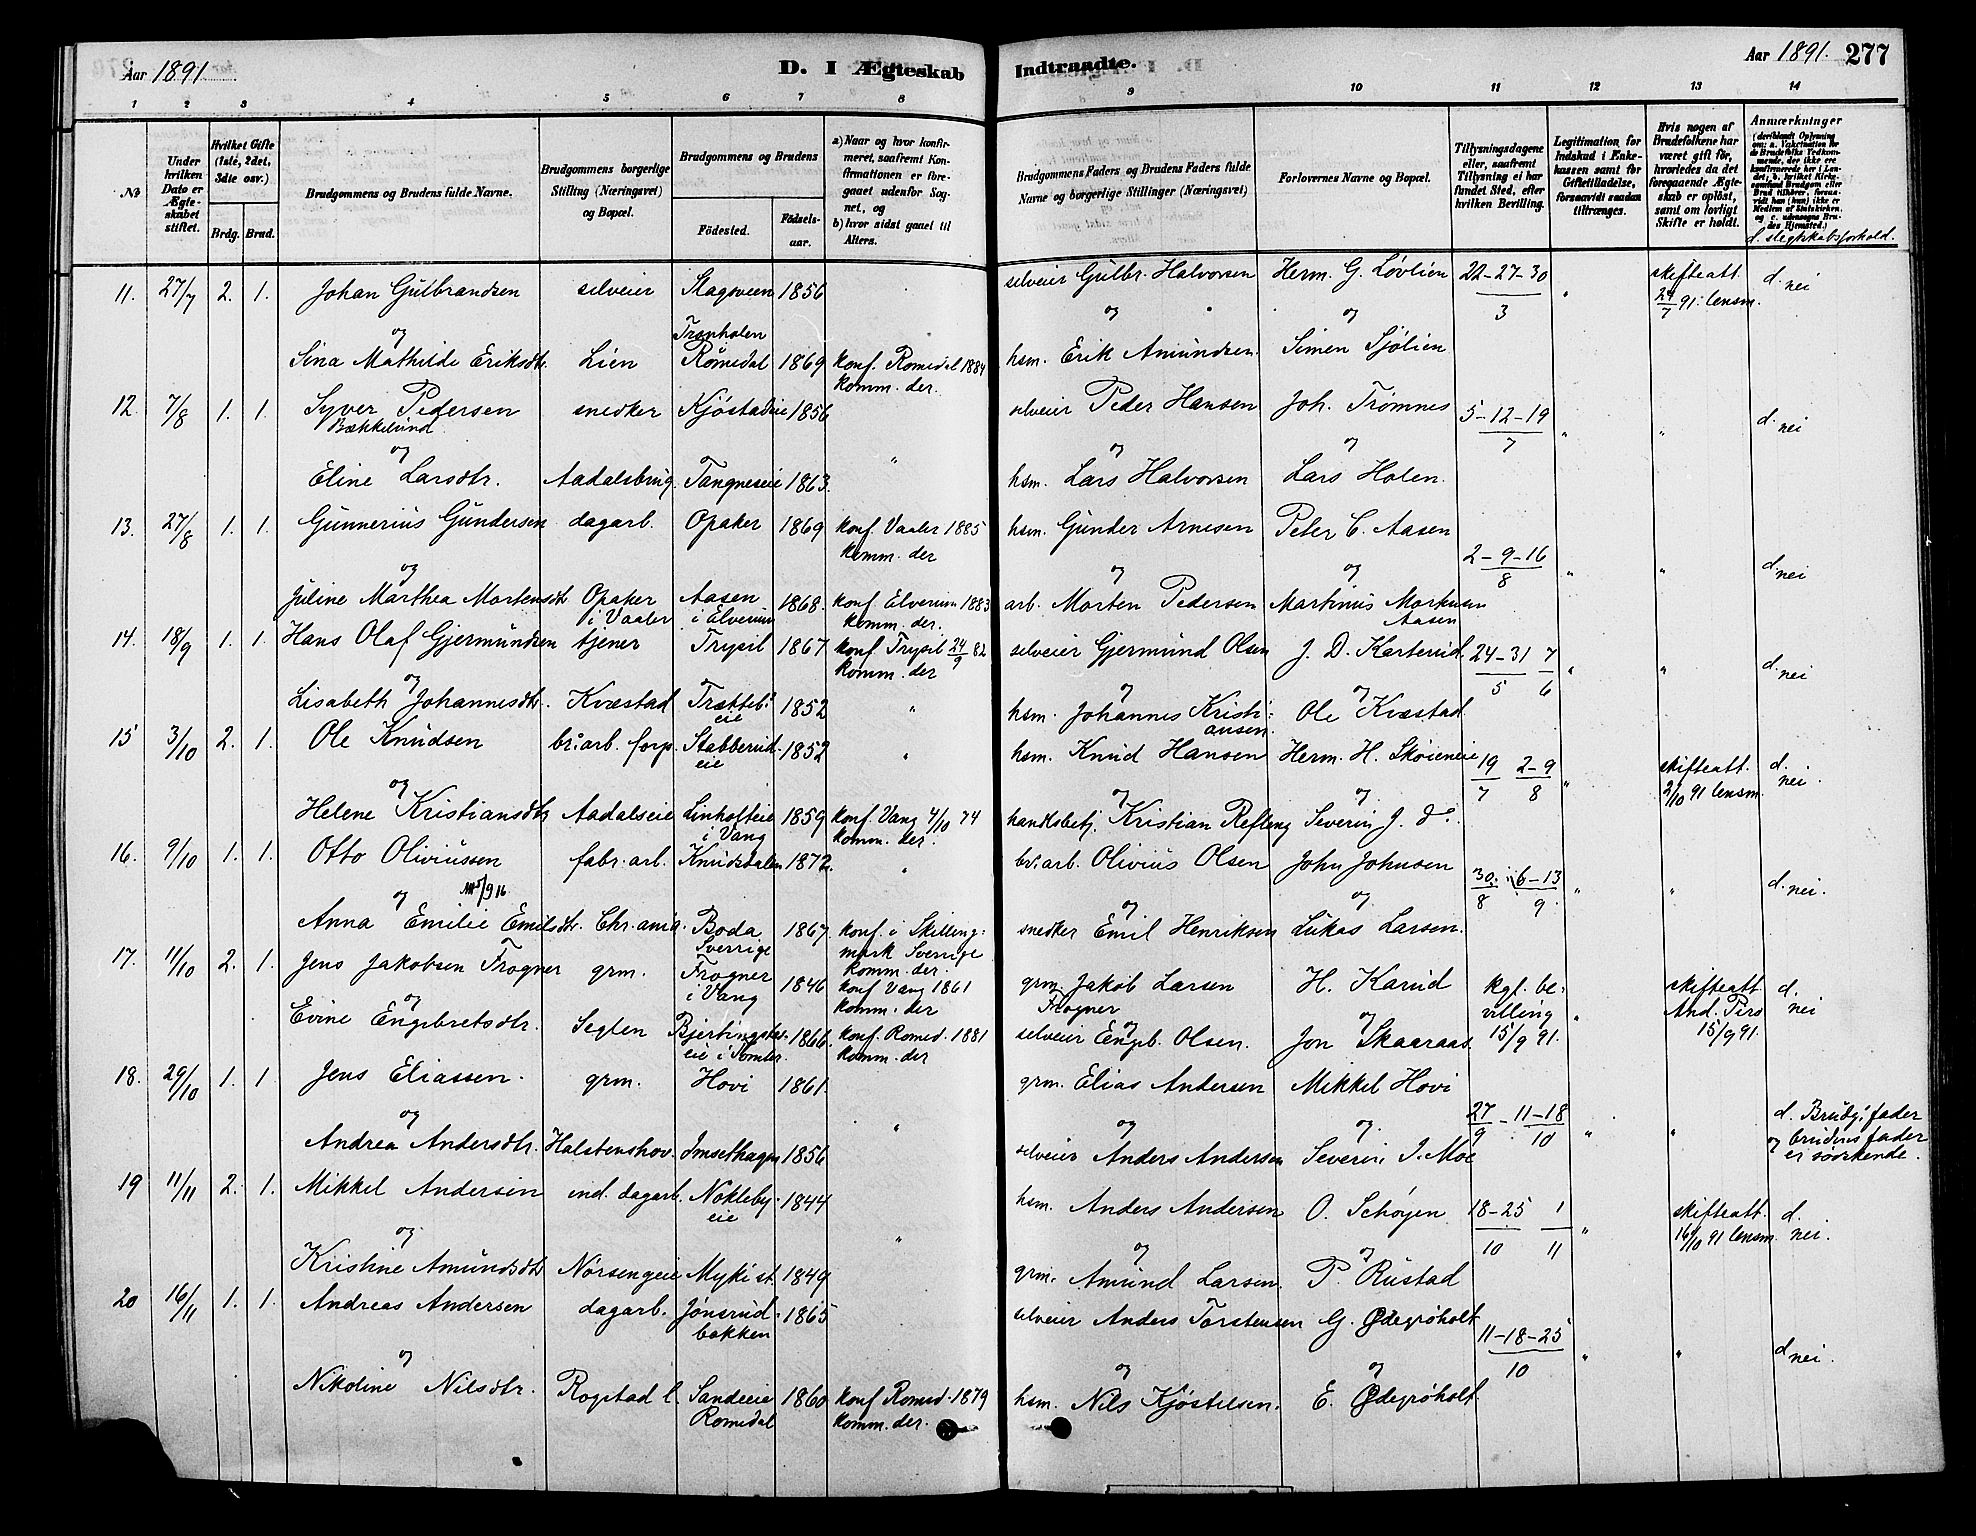 Aar 1891
D. I Ægteskab
Indtraadte.
Aar 1891. 277
1 2 3 4 5 6 7 8 9 10 11 12 13 14
No
Under hvilken Dato er Ægteskabet stiftet.
Hvilket Gifte (1ste, 2det, 3die osv.)
Brdg. Brud.
Brudgommens og Brudens fulde Navne.
Brudgommens borgerlige Stilling (Næringsvei) og Bopæl.
Brudgommens og Brudens
Födested.
Födselsaar.
a) Naar og hvor konfirmeret, saafremt Konfirmationen er foregaaet udenfor Sognet, og
b) hvor sidst gaaet til Alters.
Brudgommens Faders og Brudens Faders fulde Navne og borgerlige Stillinger (Næringsvei)
Forlovernes Navne og Bopæl.
Tillysningsdagene eller, saafremt Tillysning ei har fundet Sted, efter hvilken Bevilling.
Legitimation for Indskud i Enkekassen samt for Giftetilladelse, forsaavidt saadan tiltrænges.
Hvis nogen af Brudefolkene har været gift för, hvorledes da det foregaaende Ægteskab er oplöst, samt om lovligt Skifte er holdt.
Anmærkninger
d. slegtskabsforhold.
11. 27/7 2. 1. Johan Gulbrandsen selveier Stagsveen 1856 selveier Gulbr. Halvorsen Herm. G. Løvlien 22-27-30/3 " skifteatt. 24/7 91. lensm. d. nei
og Tronholen og og
Sina Mathilde Eriksdtr. Lien Romedal 1869 konf. Romedal 1884 hsm. Erik Amundsen Simen Sjølien
komm. der.
12. 7/8 1. 1. Syver Pedersen snedker Kjöstadeie 1856 selveier Peder Hansen Joh. Trømnes 5-12-19/7 " " d. nei
Bækkelund
og " og
Eline Larsdtr. Aadalsbrug Tangneseie 1863. hsm. Lars Halvorsen Lars Holen
13. 27/8 1. 1. Gunnerius Gundersen dagarb. Opaker 1869 konf. Vaaler 1885 hsm. Gunder Arnesen Peter C. Aasen 2-9-16/8 " " d. nei
komm. der
og og og
Juline Marthea Mortensdtr Opaker i Vaaler Aasen i Elverum 1868. konf. Elverum 1883 arb. Morten Pedersen Martinus Aasen
komm. der.
14. 18/9 1. 1. Hans Olaf Gjermundsen tjener Trysil 1867 konf. Trysil 24/9 82 selveier Gjermund Olsen J. D. Karterud. 24-31/5 7/6 " " d. nei
komm. der
og og og
Lisabeth Johannesdtr. Kvæstad Trætteb. eie 1852 " hsm. Johannes Kristiansen. Ole Kvæstad
15 3/10 2. 1. Ole Knudsen br. arb. forp. Stabberud eie 1852 " hsm. Knud Hansen Herm. H. Skøieneie 19/7 2-9/8 " skifteatt. 2/10 91 lensm. d. nei.
og og og
Helene Kristiansdtr Aadalseie Linhofteie i Vang 1859 konf. Vang 4/10 74 handlsbetj. Kristian Refling Severin J. do.
komm. der.
16. 9/10 1. 1. Otto Oliviussen fabr. arb. Knudsdalen 1872. " br. arb. Olivius Olsen John Johnsen 30/8 6-13/9 " " d. nei.
5/9 16
og og og
Anna Emilie Emilsdtr. Chr.ania. Boda Sverrige 1867. konf. i Skillingmark Sverige snedker Emil Henriksen Lukas Larsen.
komm. der.
17. 11/10 2. 1. Jens Jakobsen Frogner grm. Frogner i Vang 1846 konf. Vang 1861 grm. Jakob Larsen Frogner H. Karud kgl. bevilling 15/9 91. " skifteatt And. Piro 15/9 91. d. nei
komm. der
og og og
Evine Engebretsdtr. Seglen eie i Romedal 1866. konf. Romed. 1881 selveier Engb. Olsen. Jon Skaaraas.
komm. der
18. 29/10 1. 1 Jens Eliassen. grm. Hovi 1861. grm. Elias Andersen Mikkel Hovi 27/9 - 11-18/10 " " d. Brudg. fader og brudens fader er sødskende.
og " og og
Andrea Andersdtr. Halstenshov. Imsethagen 1856 selveier Anders Andersen Severin J. Moe
19 11/11 2. 1. Mikkel Andersen ind. dagarb. Nokleby eie 1844 hsm. Anders Andersen O. Schøyen 18-25/10 1/11 " skifteatt. 16/10 91 lensm. d. nei.
og " og og
Kristine Amundsdtr Norsengeie Myki st. 1849 grm. Amund Larsen. P. Rustad
20 16/11 1. 1. Andreas Andersen dagarb. Jønsrud bakken 1865 selveier Anders Torstensen G. Ødegrøholt 11-18-25/10 " " d. nei.
og og og
Nikoline Nilsdtr. Rogstad l. Sandeeie Romedal 1860 konf. Romed. 1879 hsm. Nils Kjøstelsen. E. Ødegrøholt
komm. der.